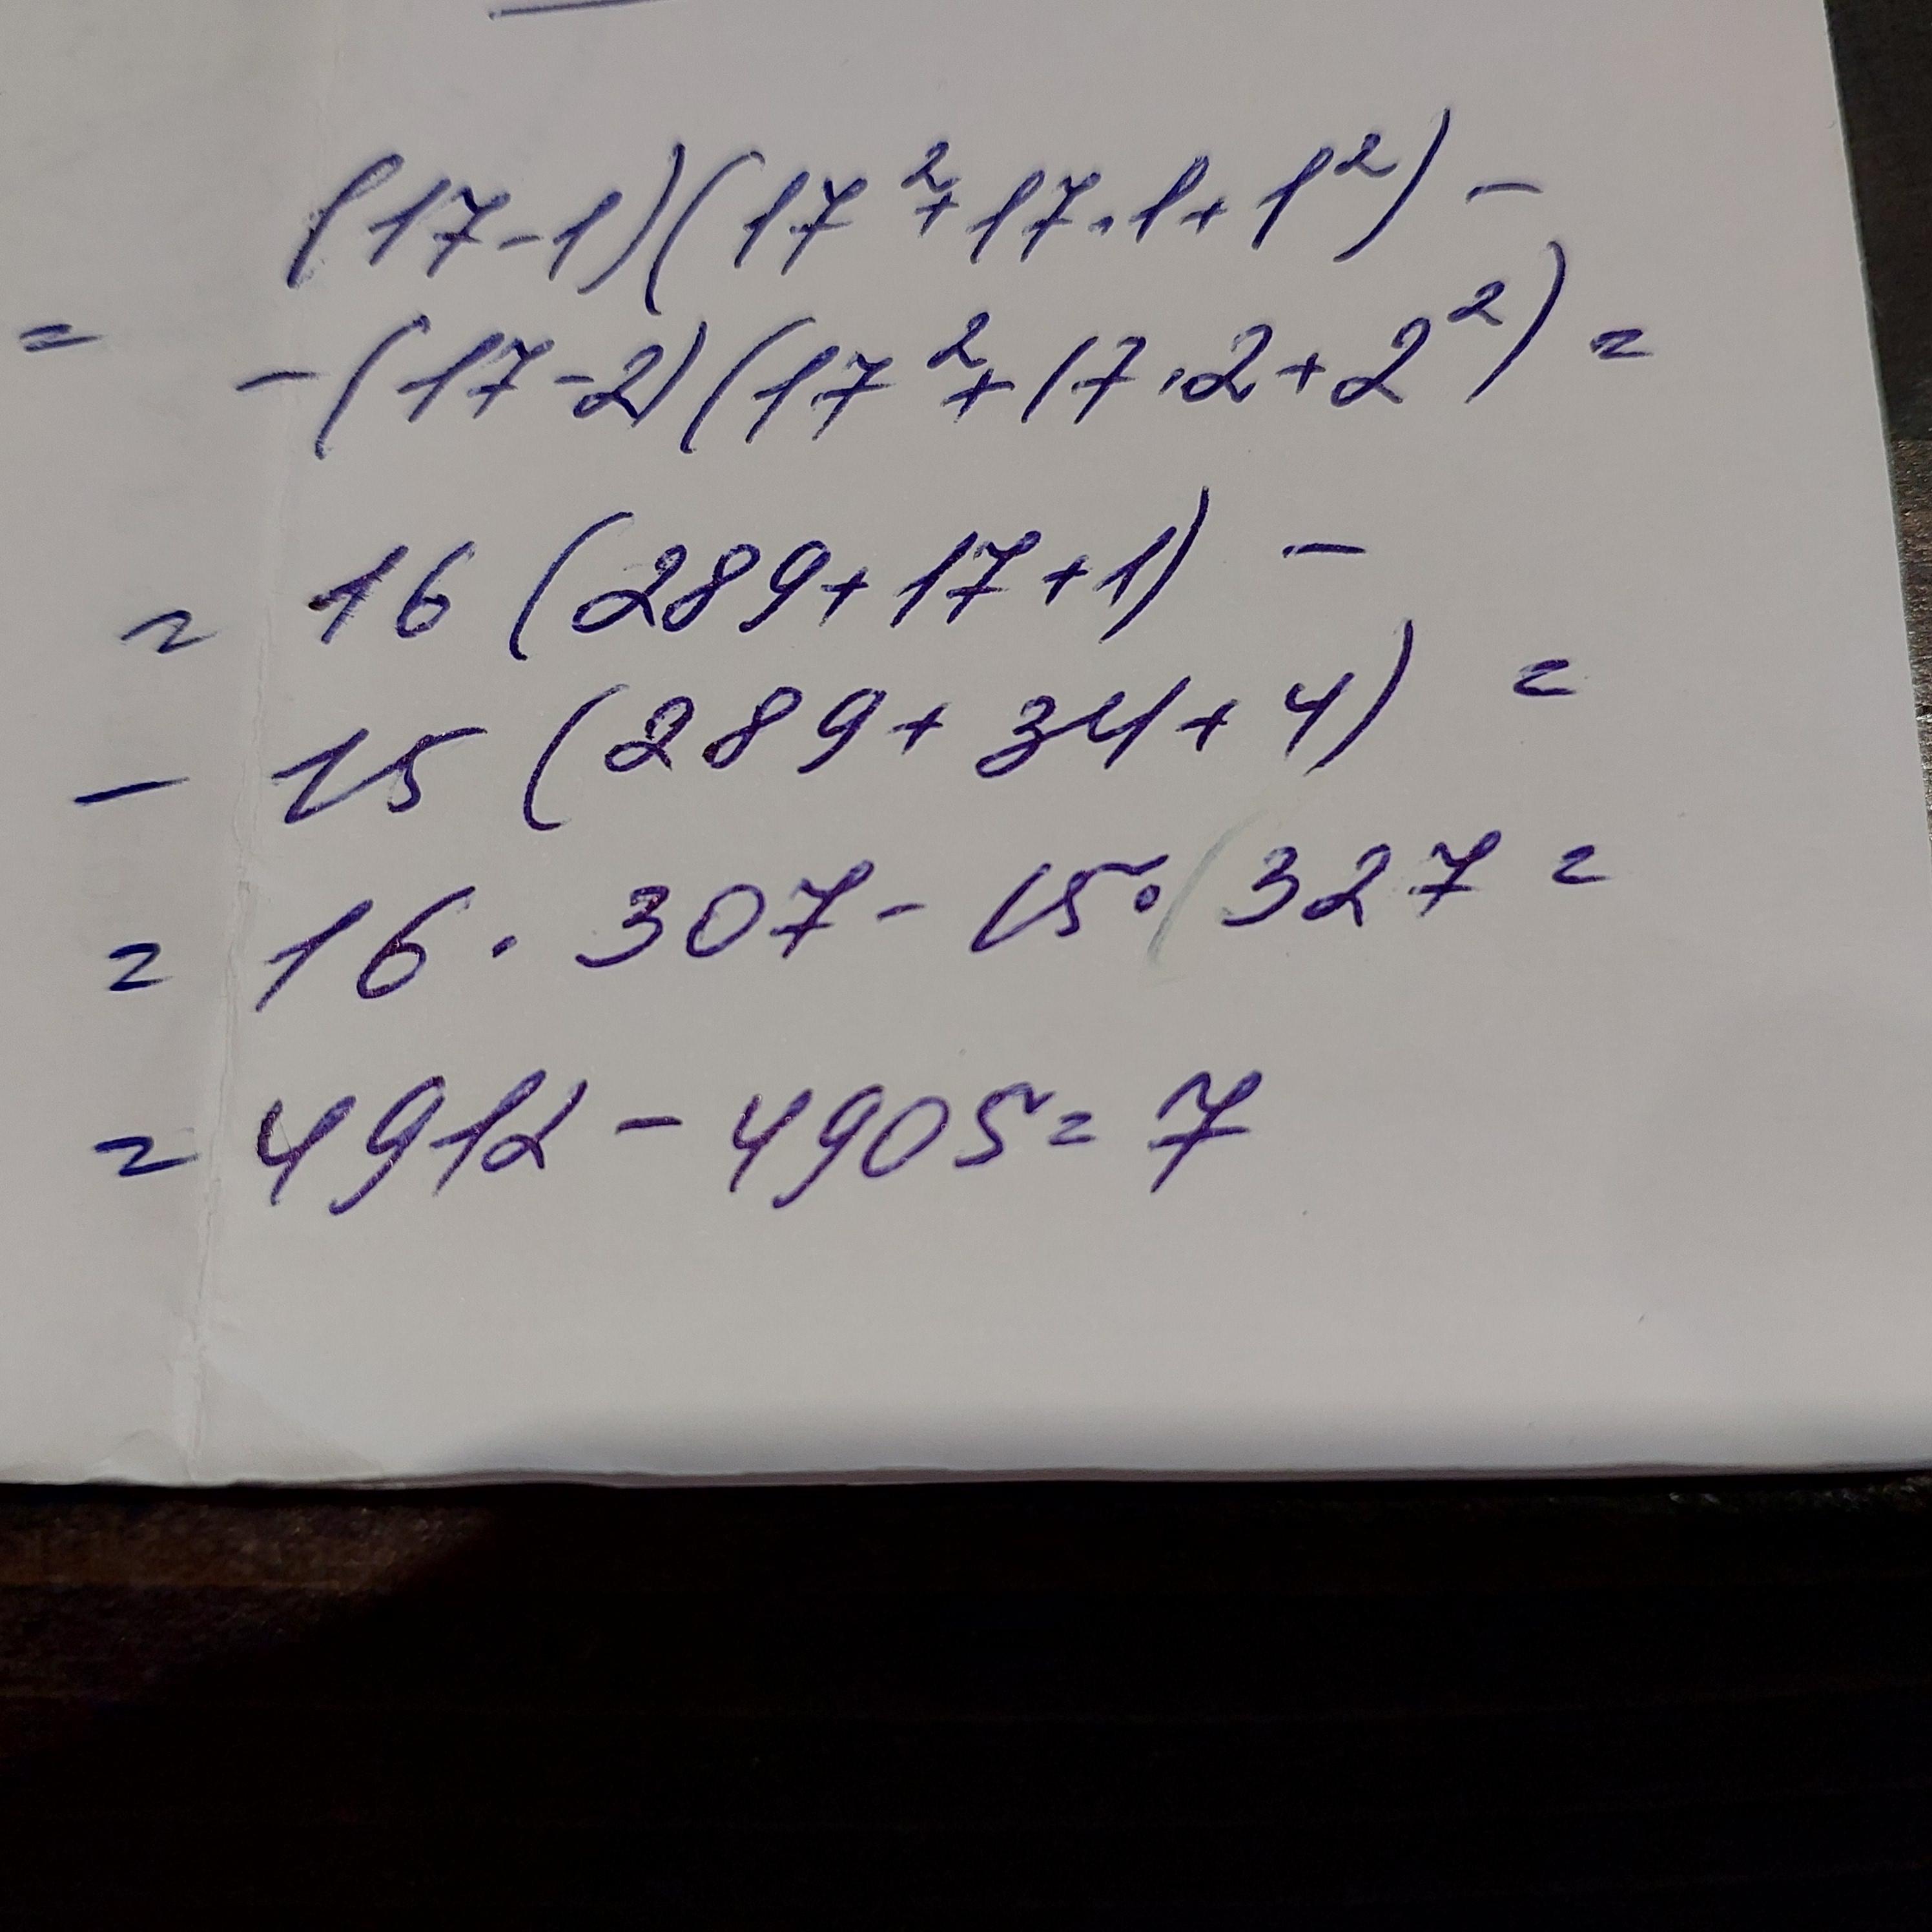 (17-1)(17²+17·1+1²) -
= -(17-2)(17²+17·2+2²) =
= 16 (289+17+1) -
- 15 (289+34+4) =
= 16 · 307 - 15 · (327 =
= 4912 - 4905 = 7